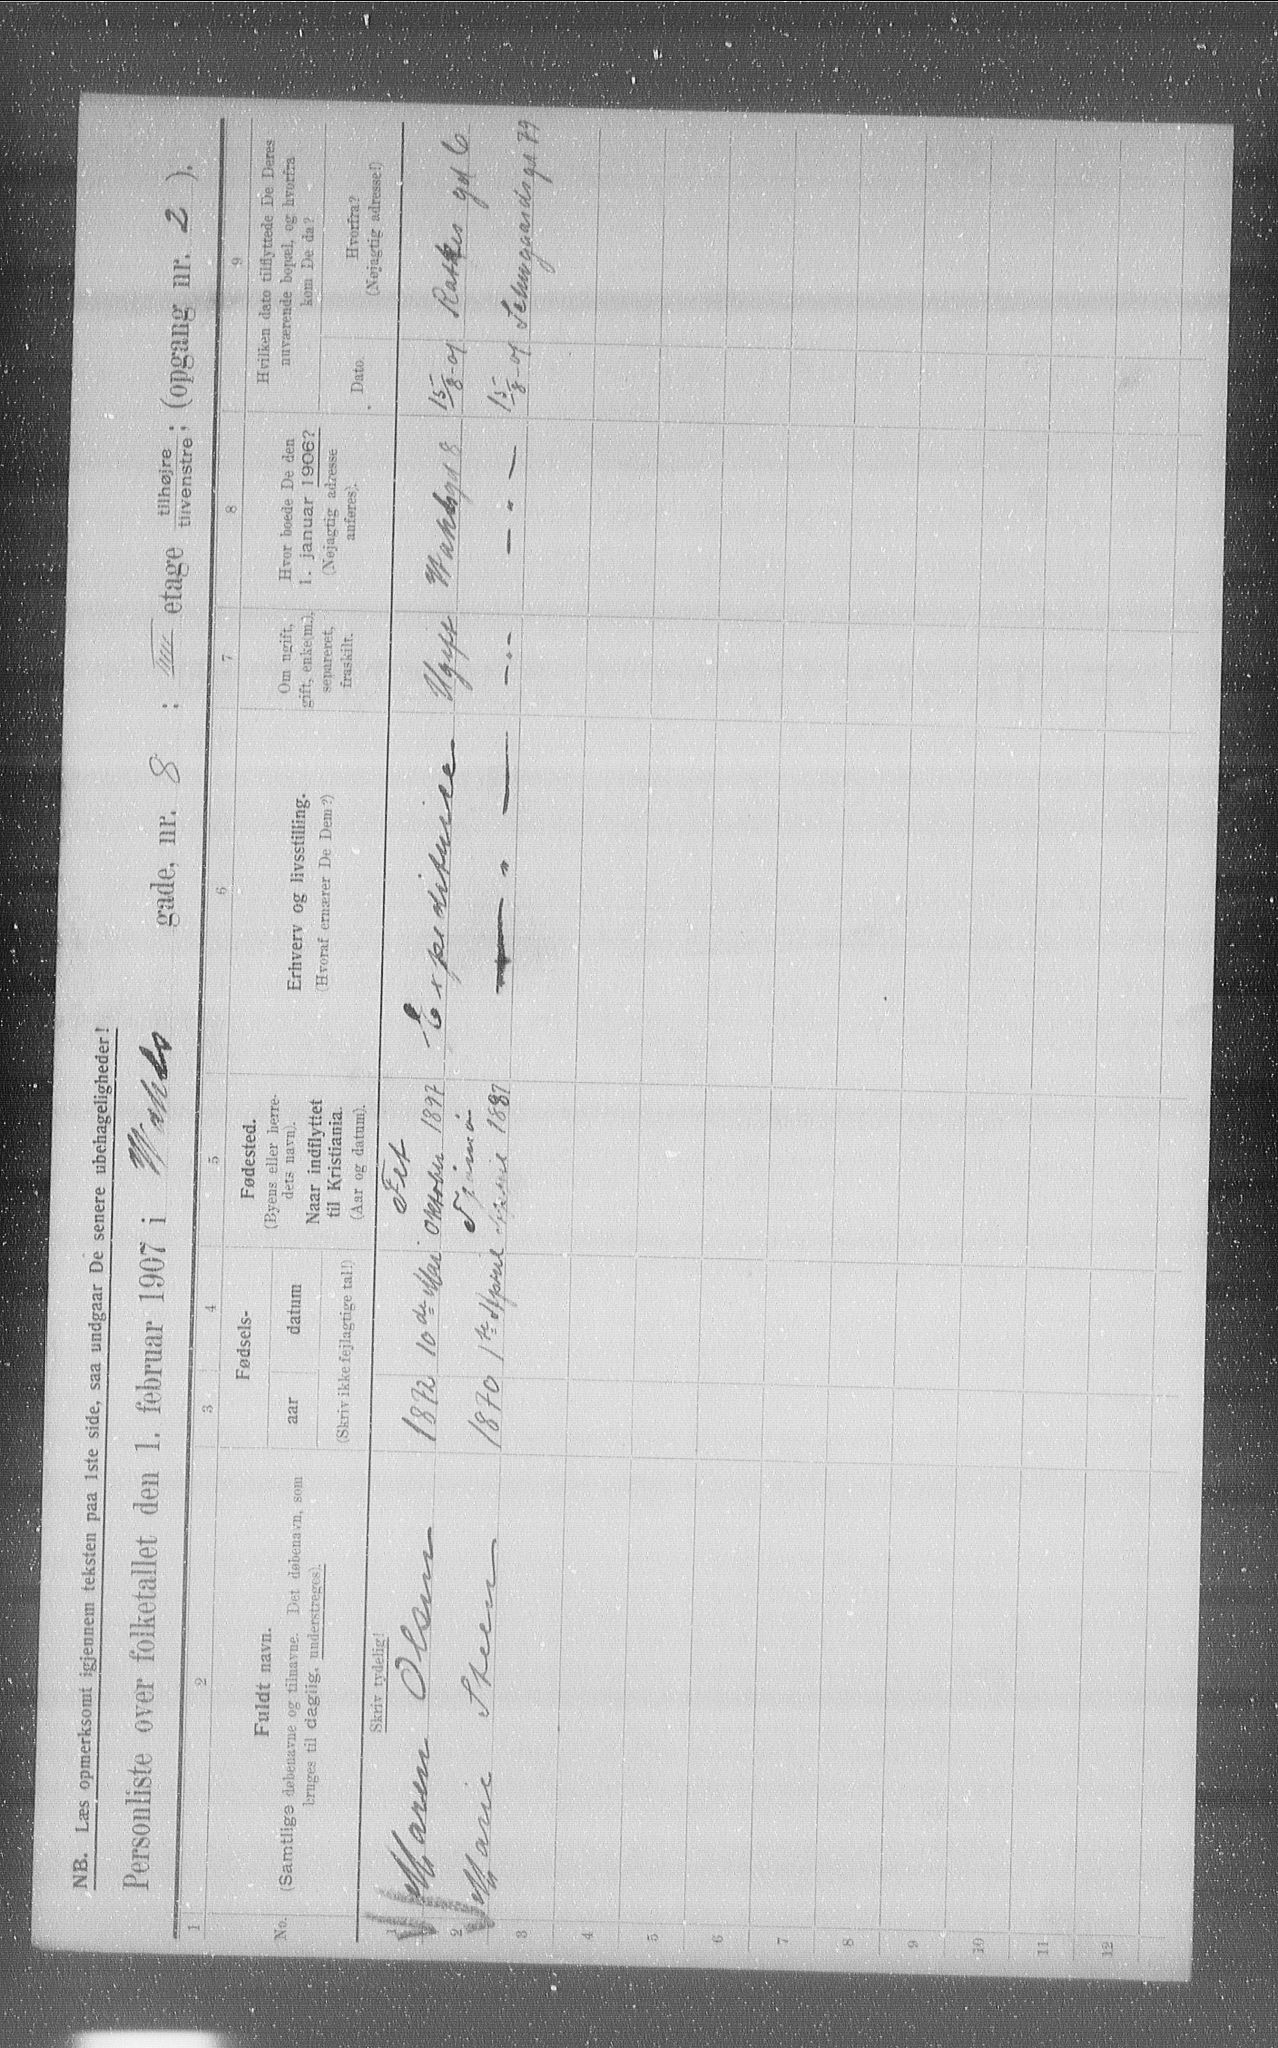 NB. Læs opmerksomt igjennem teksten paa 1ste side, saa undgaar De senere ubehageligheder!
Personliste over folketallet den 1. februar 1907 i Wahls gade, nr. 8 ; IIII etage tilhøjre ; (opgang nr. 2 ).
tilvenstre ;
1 2 3 4 5 6 7 8 9
No.
Fuldt navn.
(Samtlige døbenavne og tilnavne. Det døbenavn, som
bruges til daglig, understreges).
Skriv tydelig!
Fødsels-
aar datum
(Skriv ikke fejlagtige tal!)
Fødested.
(Byens eller herre-
dets navn).
Naar indflyttet
til Kristiania.
(Aar og datum).
Erhverv og livsstilling.
(Hvoraf ernærer De Dem?)
Om ugift,
gift, enke(m.),
separeret,
fraskilt.
Hvor boede De den
1. januar 1906?
(Nøjagtig adresse
anføres).
Hvilken dato tilflyttede De Deres
nuværende bopæl, og hvorfra
kom De da?
Dato.
Hvorfra?
(Nøjagtig adresse!)
Fet
1 Maren Olsen 1872 10de Mai Oktober 1897 Expeditrice Ugift Wahlsgd 8 15/8-01 gd 6
Tjømø
2 Marie Steen 1870 1te April 1887 — " — — " — — " — 15/8-01 Schwgaardsgd 79
3
4
5
6
7
8
9
10
11
12